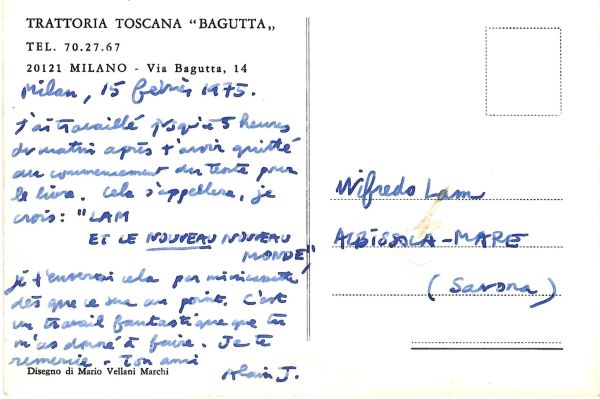 TRATTORIA TOSCANA "BAGUTTA„
TEL. 70.27.67
20121 MILANO - Via Bagutta, 14
Milan, 15 février 1975.
J'ai travaillé jusqu'à 5 heures
du matin après t'avoir quitté
au commencement du texte pour
le livre. Cela s'appellera, je
crois: "LAM
ET LE NOUVEAU NOUVEAU
MONDE",
je t'enverrai cela par minicassette
dès que ce sera au point. C'est
un travail fantastique que tu
m'as donné à faire. Je te
remercie. Ton ami
Alain J.
Disegno di Mario Vellani Marchi
Wifredo Lam
ALBISSOLA-MARE
(Savona)